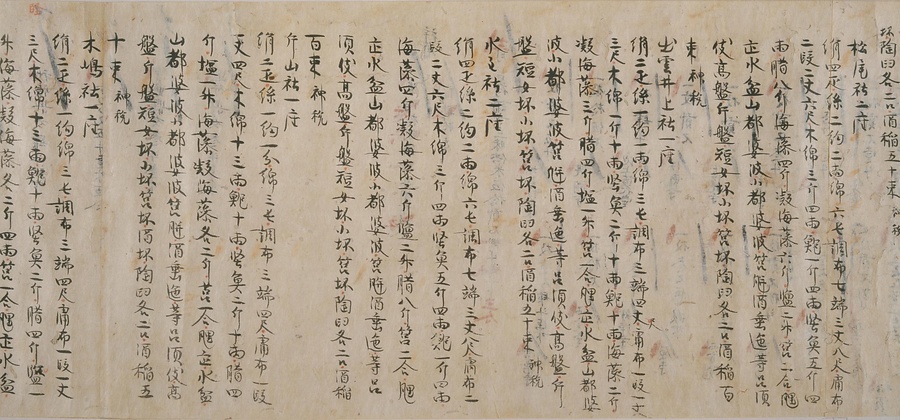 坏陶臼各二口酒稲五十束神税
松尾社二座
絹四疋糸二約二両綿六七調布七端三丈八尺庸布
二段二丈六尺木綿三斤四両鰒一斤四両堅魚五斤四
両腊八斤海藻四斤凝海藻六斤塩二升筥二合𦉢
疋水盆山都婆波小都婆波筥瓶酒垂匜等呂須
伎高盤斤盤短女坏小坏筥坏陶臼各二口酒稲百
束神税
出雲井上社一座
絹二疋糸一約一両綿三七調布三端四丈庸布一段一丈
三尺木綿一斤十三両堅魚二斤十両鰒十両海藻二斤
凝海藻三斤腊四斤塩一升筥一合𦉢疋水盆山都婆
波小都婆波筥瓶酒垂匜等呂須伎高盤斤
盤短女坏小坏筥坏陶臼各二口酒稲五十束神税
水主社二座
絹四疋糸二約二両綿六七調布七端三丈八尺庸布二
段二丈六尺木綿三斤四両堅魚五斤四両鰒一斤四両
海藻四斤凝海藻六斤塩二升腊八斤筥二合𦉢
疋水盆山都婆波小都婆波筥瓶酒垂匜等呂
須伎高盤斤盤短女坏小坏筥坏陶臼各二口酒稲
百束神税
片山社一座
絹二疋糸一約一分綿三七調布三端四尺庸布一段
一丈四尺木綿十三両鰒十両堅魚二斤十両腊四
斤塩一升海藻凝海藻各二斤筥一合𦉢疋水盆
山都婆波小都婆波筥瓶酒垂匜等呂須伎高
盤斤盤短女坏小坏筥坏酒坏陶臼各二口酒稲五
十束神税
木嶋社一座
絹二疋糸一約綿三七調布三端四尺庸布一段一丈
三尺木綿十三両鰒十両堅魚二斤腊四斤塩一
升海藻凝海藻各二斤四両筥一合𦉢疋水盆